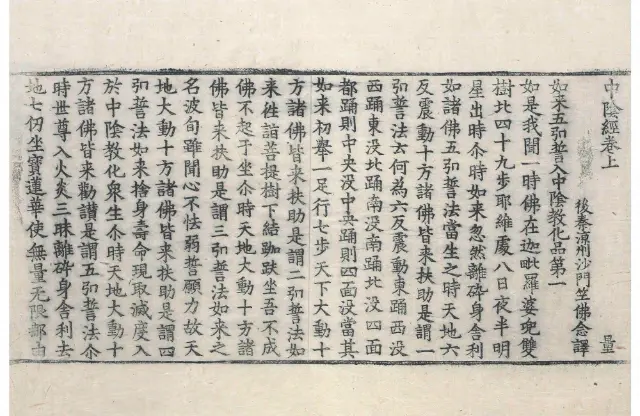 中陰經卷上　量
後秦涼州沙門竺佛念譯
如来五弘誓入中陰教化品第一
如是我聞一時佛在迦毗羅婆兜雙
樹北四十九步耶維處八日夜半明
星出時尒時如来忽然離碎身舍利
如諸佛五弘誓法當生之時天地六
反震動十方諸佛皆来扶助是謂一
弘誓法云何為六反震動東踊西没
西踊東没北踊南没南踊北没四面
都踊則中央没中央踊則四面没當其
如来初舉一足行七步天下大動十
方諸佛皆来扶助是謂二弘誓法如
来往詣菩提樹下結跏趺坐吾不成
佛不起于坐尒時天地大動十方諸
佛皆来扶助是謂三弘誓法如来之
名波旬雖聞心不怯弱誓願力故天
地大動十方諸佛皆来扶助是謂四
弘誓法如来捨身壽命現取滅度入
於中陰教化衆生尒時天地大動十
方諸佛皆来勸讃是謂五弘誓法尒
時世尊入火炎三昧離碎身舍利去
地七仞坐寶蓮華使無量无限部由